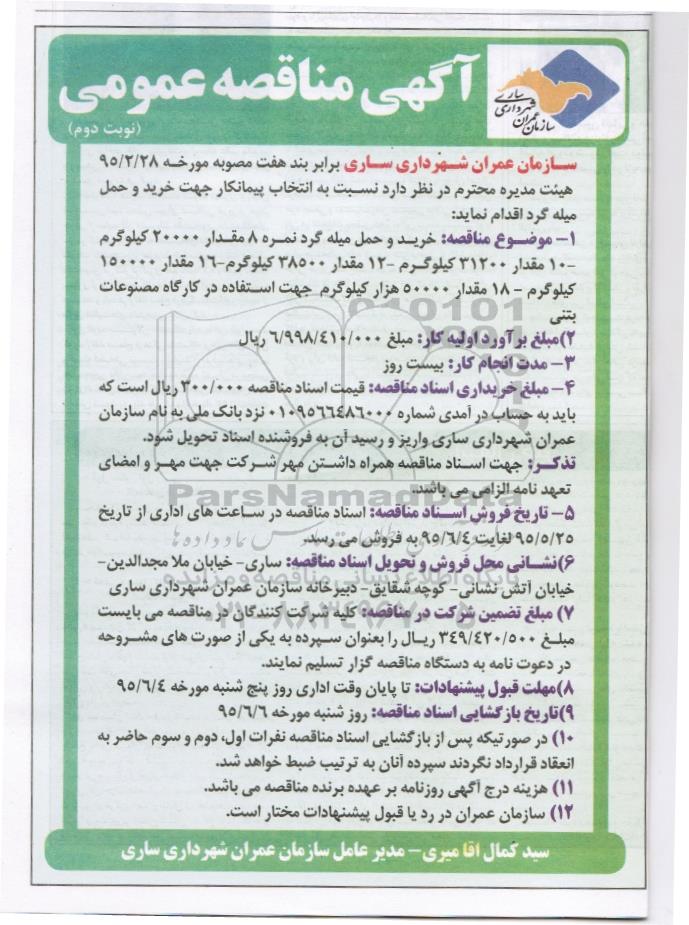 آگهی مناقصه عمومی
(نوبت دوم)
سازمان عمران
شهرداری ساری
سازمان عمران شهرداری ساری برابر بند هفت مصوبه مورخه ۹۵/۲/۲۸
هیئت مدیره محترم در نظر دارد نسبت به انتخاب پیمانکار جهت خرید و حمل
میله گرد اقدام نماید:
۱- موضوع مناقصه: خرید و حمل میله گرد نمره ۸ مقدار ۲۰۰۰۰ کیلوگرم
-۱۰ مقدار ۳۱۲۰۰ کیلوگرم -۱۲ مقدار ۳۸۵۰۰ کیلوگرم-۱۶ مقدار ۱۵۰۰۰۰
کیلوگرم - ۱۸ مقدار ۵۰۰۰۰ هزار کیلوگرم جهت استفاده در کارگاه مصنوعات
بتنی
۲)مبلغ برآورد اولیه کار: مبلغ ۶/۹۹۸/۴۱۰/۰۰۰ ریال
۳- مدت انجام کار: بیست روز
۴- مبلغ خریداری اسناد مناقصه: قیمت اسناد مناقصه ۳۰۰/۰۰۰ ریال است که
باید به حساب در آمدی شماره ۰۱۰۹۵۶۶۴۸۶۰۰۰ نزد بانک ملی به نام سازمان
عمران شهرداری ساری واریز و رسید آن به فروشنده اسناد تحویل شود.
تذکر: جهت اسناد مناقصه همراه داشتن مهر شرکت جهت مهر و امضای
تعهد نامه الزامی می باشد.
۵- تاریخ فروش اسناد مناقصه: اسناد مناقصه در ساعت های اداری از تاریخ
۹۵/۵/۲۵ لغایت ۹۵/۶/۴ به فروش می رسد.
۶)نشانی محل فروش و تحویل اسناد مناقصه: ساری- خیابان ملا مجدالدین-
خیابان آتش نشانی- کوچه شقایق- دبیرخانه سازمان عمران شهرداری ساری
۷) مبلغ تضمین شرکت در مناقصه: کلیه شرکت کنندگان در مناقصه می بایست
مبلغ ۳۴۹/۴۲۰/۵۰۰ ریال را بعنوان سپرده به یکی از صورت های مشروحه
در دعوت نامه به دستگاه مناقصه گزار تسلیم نمایند.
۸)مهلت قبول پیشنهادات: تا پایان وقت اداری روز پنج شنبه مورخه ۹۵/۶/۴
۹)تاریخ بازگشایی اسناد مناقصه: روز شنبه مورخه ۹۵/۶/۶
۱۰) در صورتیکه پس از بازگشایی اسناد مناقصه نفرات اول، دوم و سوم حاضر به
انعقاد قرارداد نگردند سپرده آنان به ترتیب ضبط خواهد شد.
۱۱) هزینه درج آگهی روزنامه بر عهده برنده مناقصه می باشد.
۱۲) سازمان عمران در رد یا قبول پیشنهادات مختار است.
سید کمال آقا میری- مدیر عامل سازمان عمران شهرداری ساری
ParsNamadData
پایگاه اطلاع رسانی مناقصه و مزایده
۰۲۱-۸۸۳۴۹۶۷۰-۵